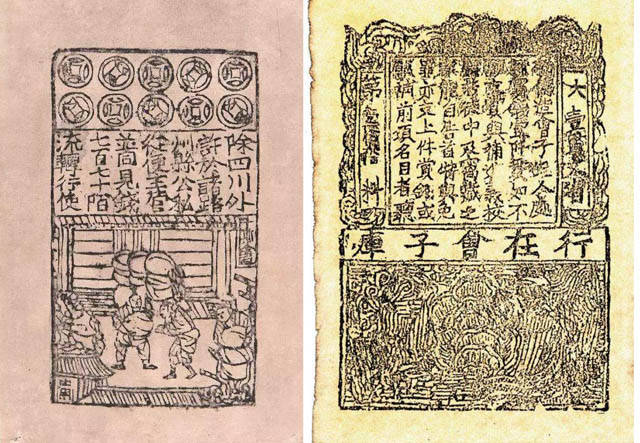 除四川外
許於諸路
州縣公私
從便主管
並同見錢
七百七十陌
流轉行使
大壹貫文省
敕偽造會子犯人處
斬賞錢壹阡貫如不
願支賞與補進義校
尉若徒中及窩藏之
家能自告首特與免
罪亦支上件賞錢或
願補前項名目者聽
第料
行在會子庫